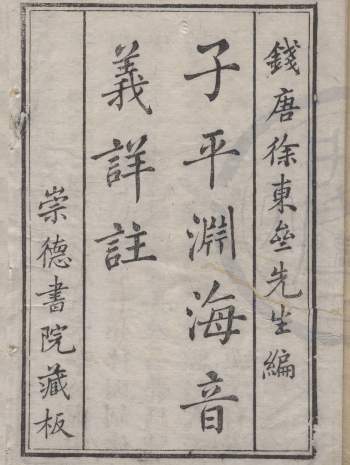 錢唐徐東垒先生編
子平淵海音
義詳註
崇德書院藏板